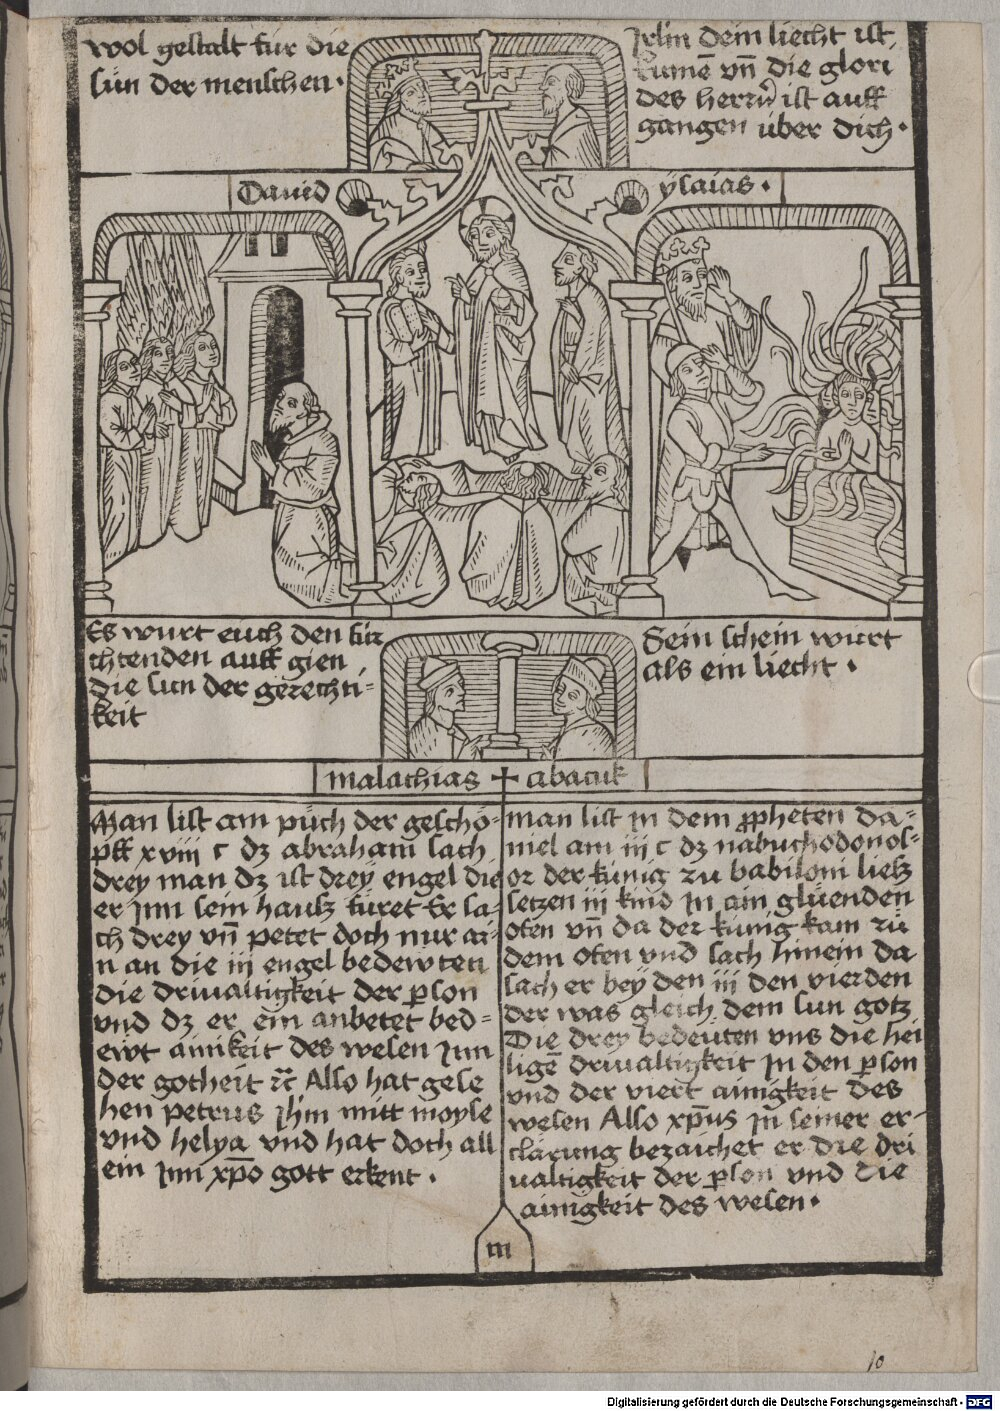 wol gestalt für die
sün der menschen·
Jrl̄m dein liecht ist
kumē vn̄ die glori
des herrn̄ ist auff
gangen über dich·
Dauid
ysaias·
Es wurt euch den für
chtenden auff gien
die sun der gerechti=
keit
Sein schein wurt
als ein liecht·
malachias + abacuk
Man list am půch der geschö=
pff xviii c dz abraham sach
drey man dz ist drey engel die
er jnn sein hausz füret Er sa=
ch drey vn̄ petet doch nur ai=
n an die iii engel bedewten
die driualtigkeit der p̄son
vnd dz er ein anbetet bed=
ewt ainikeit des wesen jnn
der gotheit ꝛc̄ Also hat gese
hen petrus jhm̄ mitt moyse
vnd helya vnd hat doch all
ein jnn xp̄o gott erkent·
man list in dem ꝓpheten da=
niel am iii c dz nabuchodonos=
or der künig zu babiloni liesz
setzen iii kind in ain glüenden
ofen vn̄ da der künig kam zů
dem ofen vnd sach hinein da
sach er bey den iii den vierden
der was gleich dem sun gotz
Die drey bedeüten vns die hei
ligē driualtigkeit in den p̄son
vnd der viert ainigkeit des
wesen Also xp̄us jn̄ seiner er=
clärung bezaichet er die dri
ualtigkeit der p̄son vnd die
ainigkeit des wesen·
m
10
Digitalisierung gefördert durch die Deutsche Forschungsgemeinschaft · DFG